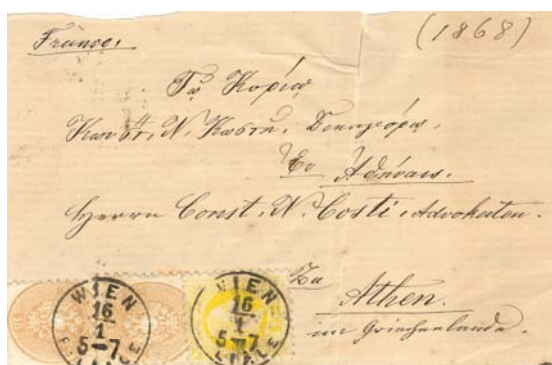 Franco.
(1868)
Τῷ Κυρίῳ
Κωνστ. Ν. Κωστῆ, Δικηγόρῳ.
Ἐν Ἀθήναις.
Herrn Const. N. Costi, Advokaten.
Zu
Athen.
im Griechenlande.
WIEN
16
1
5-7
FILIALE
WIEN
16
1
5-7
FILIALE